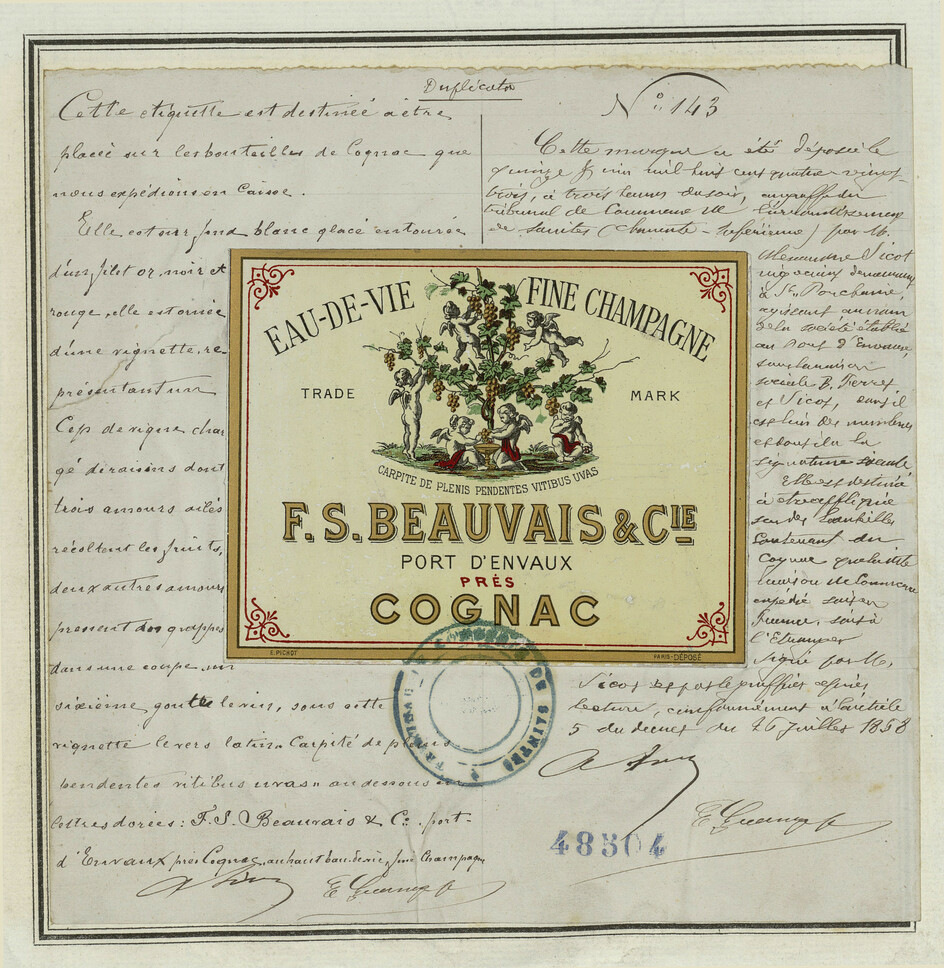 Duplicata
Cette étiquette est destinée à être
placée sur les bouteilles de Cognac que
nous expédions en Caisse.
Elle est sur fond blanc glacé entourée
d'un filet or, noir et
rouge, elle est ornée
d'une vignette, re-
présentant un
Cep de vigne char
gé de raisins dont
trois amours ailés
récoltent les fruits,
deux autres amours
pressent des grappes
dans une coupe, un
sixième goutte le vin, sous cette
vignette le vers latin "Carpité de plenis
pendentes vitibus uvas" au dessous en
lettres dorées: F. S. Beauvais & Cie. port-
d'Envaux près Cognac, au haut eau-de-vie, fine Champagne
EAU-DE-VIE FINE CHAMPAGNE
TRADE MARK
CARPITE DE PLENIS PENDENTES VITIBUS UVAS
F. S. BEAUVAIS & CIE
PORT D'ENVAUX
PRÉS
COGNAC
E. PICHOT PARIS-DÉPOSÉ
N° 143
Cette marque a été déposée le
quinze juin mil huit cent quatre vingt-
trois, à trois heures du soir, au greffe du
tribunal de Commerce de l'arrondissement
de Saintes (Charente-Inférieure) par M.
Alexandre Vicot
négociant demeurant
à St. Porchaire,
agissant au nom
de la société établie
au Port d'Envaux,
sous la raison
sociale
et Vicot, dont il
est l'un des membres
et dont il a la
signature sociale
Elle est destinée
à être affiquée
sur des bouteilles
contenant du
Cognac produit de
la maison de Commerce
expédié soit en
France, soit à
l'Etranger
Signé par M.
Vicot et par le greffier après
lecture, conformément à l'article
5 du décret du 26 Juillet 1858
DE SAINTES
48504